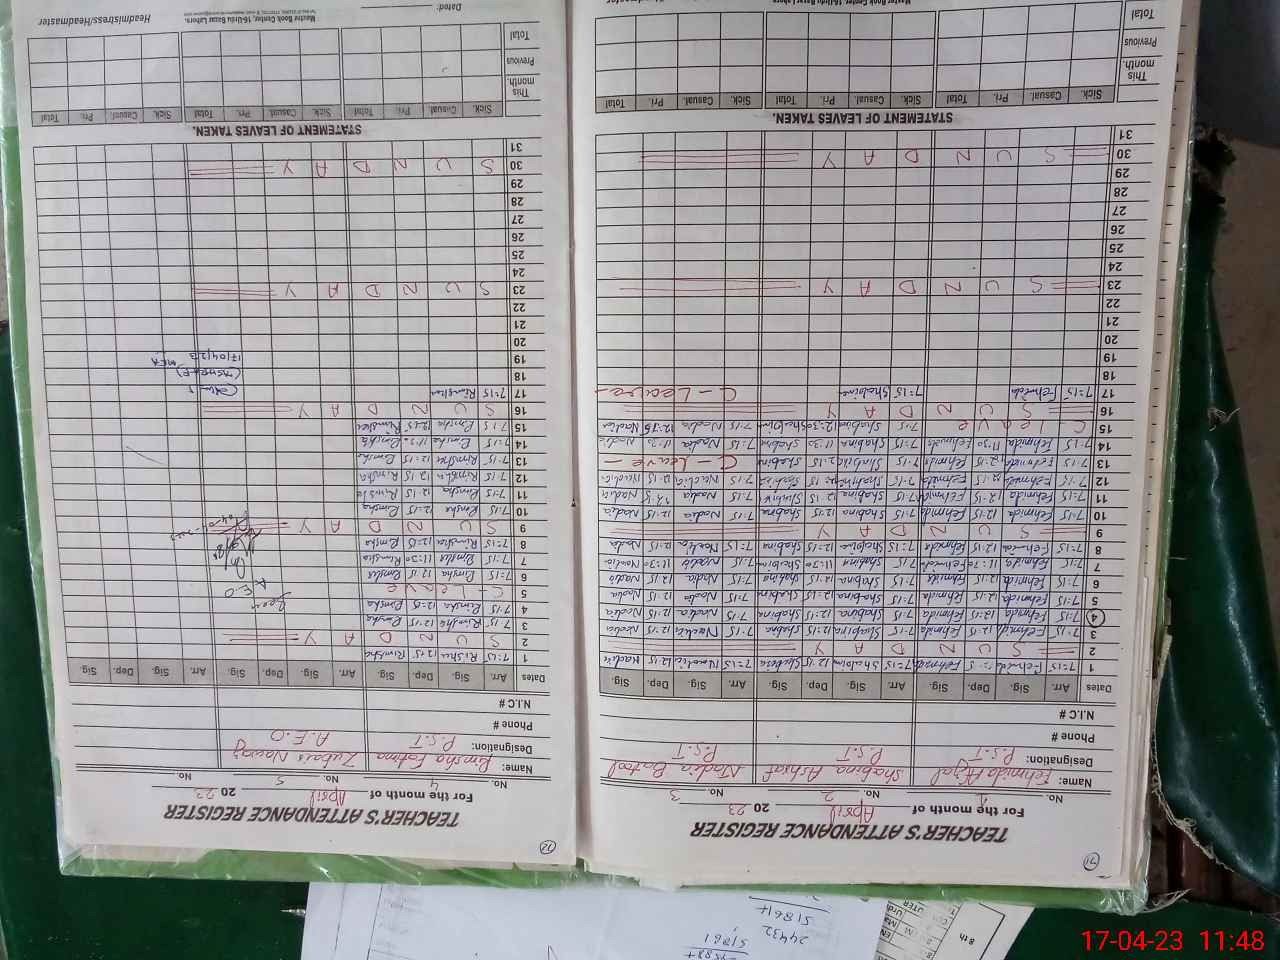 71
TEACHER'S ATTENDANCE REGISTER
For the month of April 2023
No. 1 No. 2 No. 3
Name: Fehmida Afzal Shabina Ashraf Nadia Batool
Designation: P.S.T P.S.T P.S.T
Phone #
N.I.C #
Dates Arr. Sig. Dep. Sig. Arr. Sig. Dep. Sig. Arr. Sig. Dep. Sig.
1 7:15 Fehmida Fehmida 7:15 Shabina 12:15 Shabina 7:15 Nadia 12:15 Nadia
2 S U N D A Y
3 7:15 Fehmida 12:15 Fehmida 7:15 Shabina 12:15 Shabina 7:15 Nadia 12:15 Nadia
4 7:15 Fehmida 12:15 Fehmida 7:15 Shabina 12:15 Shabina 7:15 Nadia 12:15 Nadia
5 7:15 Fehmida 12:15 Fehmida 7:15 Shabina 12:15 Shabina 7:15 Nadia 12:15 Nadia
6 7:15 Fehmida 12:15 Fehmida 7:15 Shabina 12:15 Shabina 7:15 Nadia 12:15 Nadia
7 7:15 Fehmida 11:30 Fehmida 7:15 Shabina 11:30 Shabina 7:15 Nadia 11:30 Nadia
8 7:15 Fehmida 12:15 Fehmida 7:15 Shabina 12:15 Shabina 7:15 Nadia 12:15 Nadia
9 S U N D A Y
10 7:15 Fehmida 12:15 Fehmida 7:15 Shabina 12:15 Shabina 7:15 Nadia 12:15 Nadia
11 7:15 Fehmida 12:15 Fehmida 7:15 Shabina 12:15 Shabina 7:15 Nadia Nadia
12 7:15 Fehmida 12:15 Fehmida 7:15 Shabina 12:15 Shabina 7:15 Nadia 12:15 Nadia
13 7:15 Fehmida 12:15 Fehmida 7:15 Shabina 12:15 Shabina C-Leave
14 7:15 Fehmida 11:30 Fehmida 7:15 Shabina 11:30 Shabina 7:15 Nadia 11:30 Nadia
15 C-Leave 7:15 Shabina 12:30 Shabina 7:15 Nadia 12:15 Nadia
16 S U N D A Y
17 7:15 Fehmida 7:15 Shabina C-Leave
18
19
20
21
22
23 S U N D A Y
24
25
26
27
28
29
30 S U N D A Y
31
STATEMENT OF LEAVES TAKEN.
Sick. Casual. Pri. Total Sick. Casual. Pri. Total Sick. Casual. Pri. Total
This month.
Previous
Total
72
TEACHER'S ATTENDANCE REGISTER
For the month of April 2023
No. 4 No. 5 No.
Name: Rimsha Fatima Zubair Nawaz
Designation: P.S.T A.E.O
Phone #
N.I.C #
Dates Arr. Sig. Dep. Sig. Arr. Sig. Dep. Sig. Arr. Sig. Dep. Sig.
1 7:15 Rimsha 12:15 Rimsha
2 S U N D A Y
3 7:15 Rimsha 12:15 Rimsha
4 7:15 Rimsha 12:15 Rimsha
5 C-Leave
6 7:15 Rimsha 12:15 Rimsha
7 7:15 Rimsha 11:30 Rimsha
8 7:15 Rimsha 12:15 Rimsha
9 S U N D A Y
10 7:15 Rimsha 12:15 Rimsha
11 7:15 Rimsha 12:15 Rimsha
12 7:15 Rimsha 12:15 Rimsha
13 7:15 Rimsha 12:15 Rimsha
14 7:15 Rimsha Rimsha
15 7:15 Rimsha 12:15 Rimsha
16 S U N D A Y
17 7:15 Rimsha
18
19 17/04/23 MEA
20
21
22
23 S U N D A Y
24
25
26
27
28
29
30 S U N D A Y
31
STATEMENT OF LEAVES TAKEN.
Sick. Casual. Pri. Total Sick. Casual. Pri. Total Sick. Casual. Pri. Total
This month.
Previous
Total
Dated:
Master Book Center, 16-Urdu Bazar Lahore.
Headmistress/Headmaster
24432
51861
8th
17-04-23 11:48